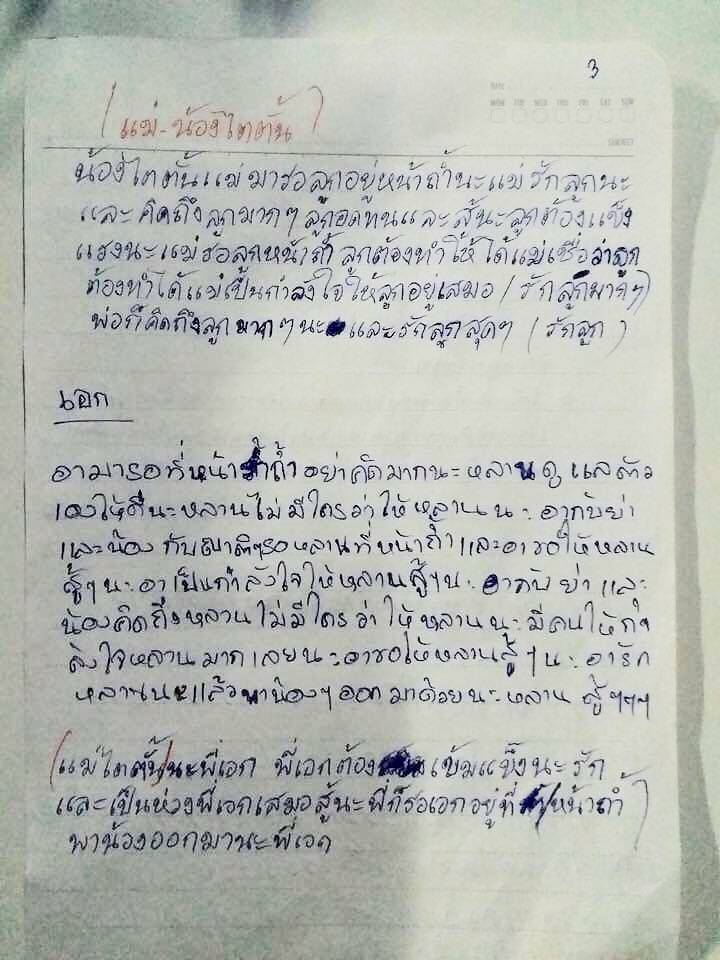 3
DATE
MON TUE WED THU FRI SAT SUN
SUBJECT
(แม่-น้องไตตั้น)
น้องไตตั้นแม่มารอลูกอยู่หน้าถ้ำนะแม่รักลูกนะ
และคิดถึงลูกมากๆลูกอดทนและสู้นะลูกต้องแข็ง
แรงนะแม่รอลูกหน้าถ้ำลูกต้องทำให้ได้แม่เชื่อว่าลูก
ต้องทำได้แม่เป็นกำลังใจให้ลูกอยู่เสมอ(รักลูกมากๆ)
พ่อก็คิดถึงลูกมากๆนะและรักลูกสุดๆ (รักลูก)
เอก
อามารอที่หน้าถ้ำอย่าคิดมากนะหลานดูแลตัว
เองให้ดีนะหลานไม่มีใครว่าให้หลานนะอากับย่า
และน้อง กับญาติๆรอหลานที่หน้าถ้ำและอาขอให้หลาน
สู้ๆนะอาเป็นกำลังใจให้หลานสู้ๆนะอากับย่าและ
น้องคิดถึงหลานไม่มีใครว่าให้หลานนะมีคนให้กำ
ลังใจหลานมากเลยนะอาขอให้หลานสู้ๆนะอารัก
หลานนะแล้วพาน้องๆออกมาด้วยนะหลาน สู้ๆๆๆ
(แม่ไตตั้น)นะพี่เอก พี่เอกต้องเข้มแข็งนะรัก
และเป็นห่วงพี่เอกเสมอสู้นะพี่ก็รอเอกอยู่ที่หน้าถ้ำ
พาน้องออกมานะพี่เอก